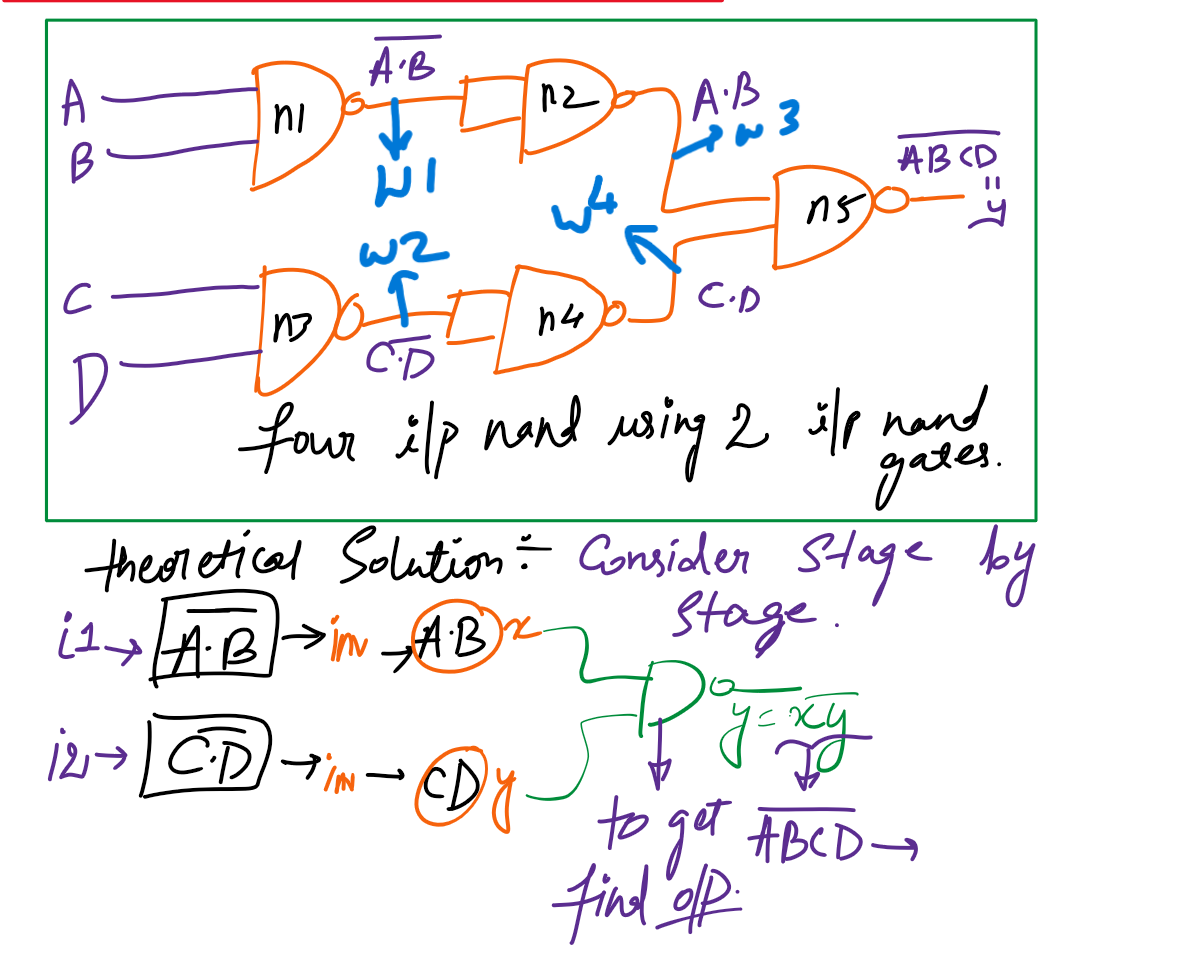 A̅·̅B̅
A
n1
n2
A·B
w3
B
A̅B̅C̅D̅
W1
=
y
n5
w4
w2
C
n3
n4
C·D
C̅·̅D̅
D
four i/p nand using 2 i/p nand
gates.
theoretical Solution÷ Consider Stage by
Stage.
i1→ A̅·̅B̅ →inv →A·B x
y = x̅y̅
i2→ C̅·̅D̅ →inv → CD y
to get A̅B̅C̅D̅ →
find o/p.